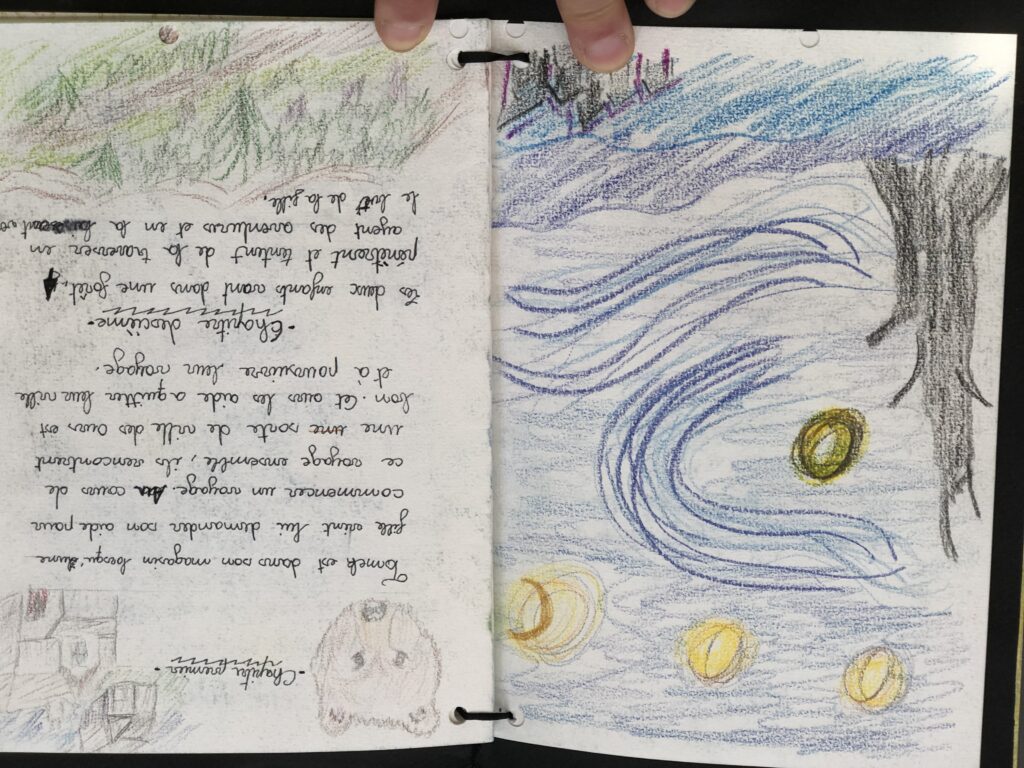 - Chapitre premier -
Tomek est dans son magasin lorsqu'une
fille vient lui demander son aide pour
commencer un voyage. Au cours de
ce voyage ensemble, ils rencontrent
une une sorte de ville des ours est
bon. Cet ours les aide a quitter leur ville
et à poursuivre leur voyage.
- Chapitre descième -
Les deux enfants vont dans une forêt,
pénétrent et tentent de la traverser en
ayent des aventures et en la
le but de la fille.